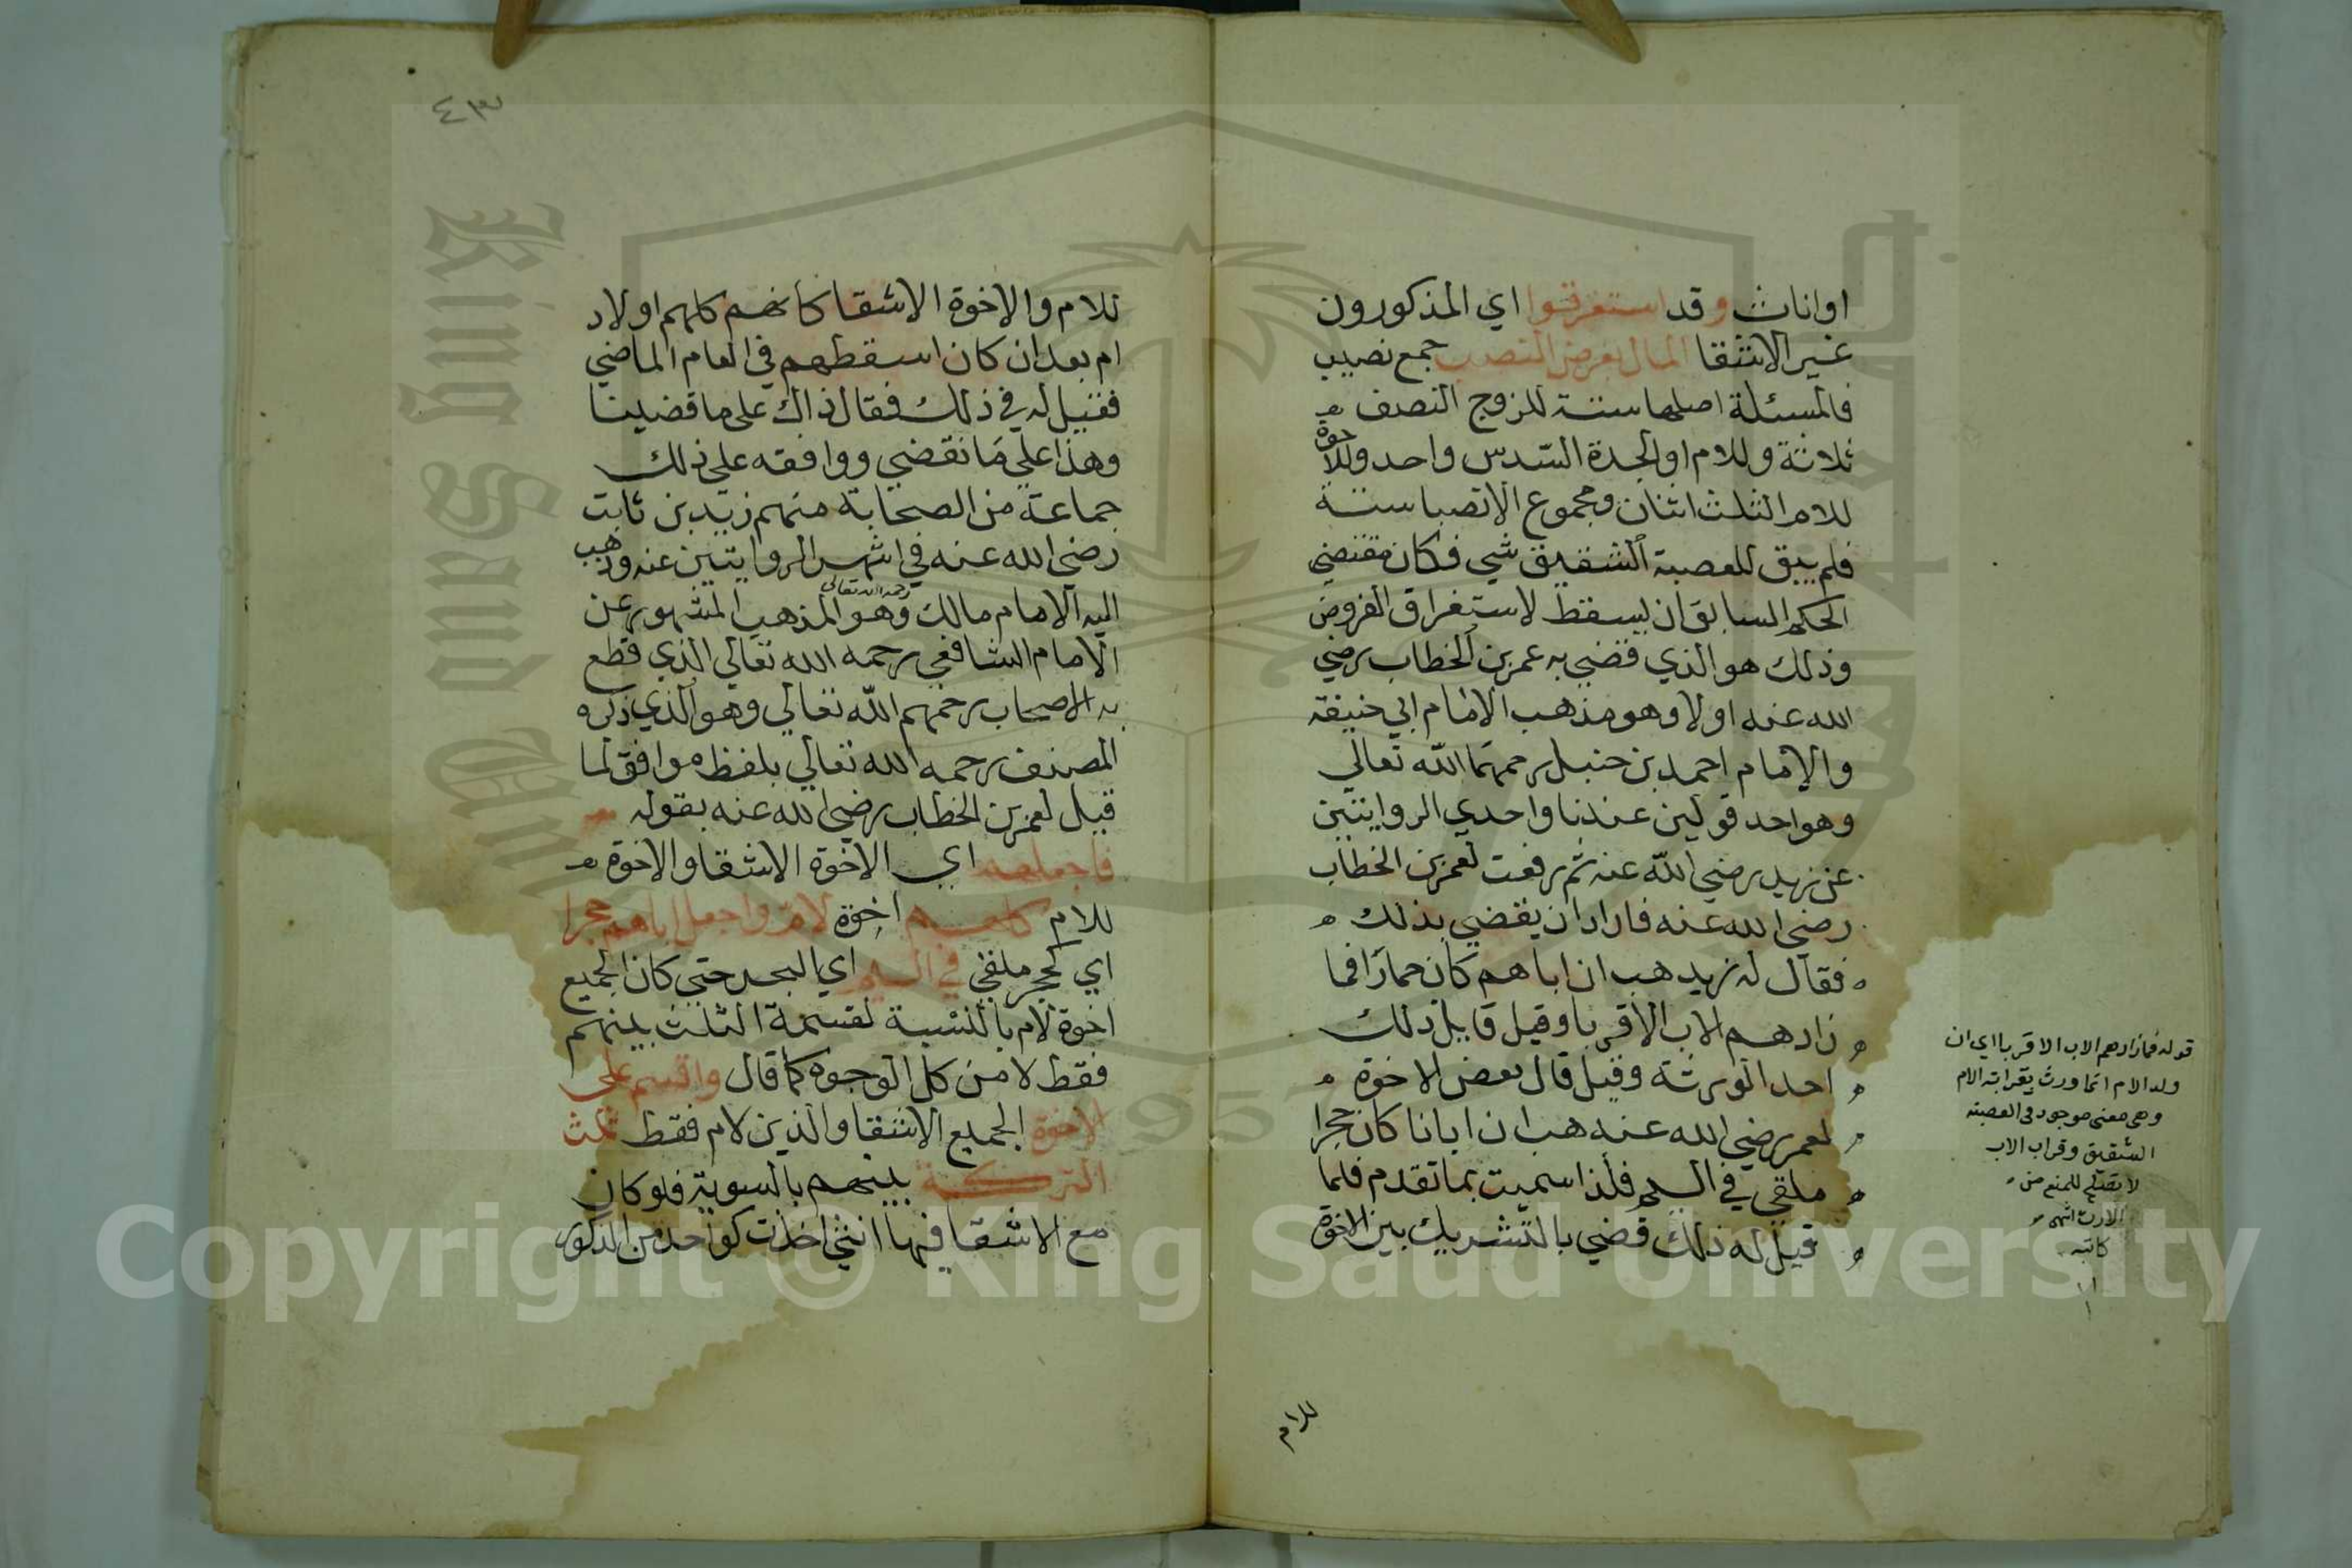 اواناث وقد استغرقوا اي المذكورون
غير الاشقا المال بفرض النصب جمع نصيب
فالمسئلة اصلها ستة للزوج النصف
ثلاثة وللام او الجدة السّدس واحد وللاخوة
للام الثلث اثنان ومجموع الانصبا ستة
فلم يبق للعصبة الشقيق شي فكان مقتضي
الحكم السابق ان يسقط لاستغراق الفروض
وذلك هو الذي قضي به عمر بن الخطاب رضي
الله عنه اولا وهو مذهب الامام ابي حنيفة
والامام احمد بن حنبل رحمهما الله تعالي
وهو احد قولين عندنا واحدي الروايتين
عن زيد رضي الله عنه ثم رفعت لعمر بن الخطاب
رضي الله عنه فاراد ان يقضي بذلك
فقال له زيد هب ان اباهم كان حمارا فما
زادهم الاب الا قربا وقيل قايل ذلك
احد الورثة وقيل قال بعض الاخوة
لعمر رضي الله عنه هب ان ابانا كان حجرا
ملقي في اليم فلذا سميت بما تقدم فلما
قيل له ذلك قضي بالتشريك بين الاخوة
للام
قوله فما زادهم الاب الا قربا اي ان
ولد الام انما ورث بقرابته الام
وهى معنى موجود فى العصبة
الشقيق وقراب الاب
لا تصلح للمنع من
الارث انتهى
كاتبه
٤٣
للام والاخوة الاشقا كانهم كلهم اولاد
ام بعد ان كان اسقطهم في العام الماضي
فقيل له في ذلك فقال ذاك علي ما قضينا
وهذا علي ما نقضي ووافقه علي ذلك
جماعة من الصحابة منهم زيد بن ثابت
رضي الله عنه في اشهر الروايتين عنه وذهب
اليه الامام مالك رحمه الله تعالى وهو المذهب المشهور عن
الامام الشافعي رحمه الله تعالي الذي قطع
به الاصحاب رحمهم الله تعالي وهو الذي ذكره
المصنف رحمه الله تعالي بلفظ موافق لما
قيل لعمر بن الخطاب رضي الله عنه بقوله
فاجعلهم اي الاخوة الاشقا والاخوة
للام كلهم اخوة لام واجعل اباهم حجرا
اي كحجر ملقي في اليم اي البحر حتي كان الجميع
اخوة لام بالنسبة لقسمة الثلث بينهم
فقط لا من كل الوجوه كما قال واقسم على
الاخوة الجميع الاشقا والذين لام فقط ثلث
التركة بينهم بالسوية فلو كان
مع الاشقا فيها انثي اخذت كواحد من الذكور
Copyright © King Saud University
King Saud Uni
1957